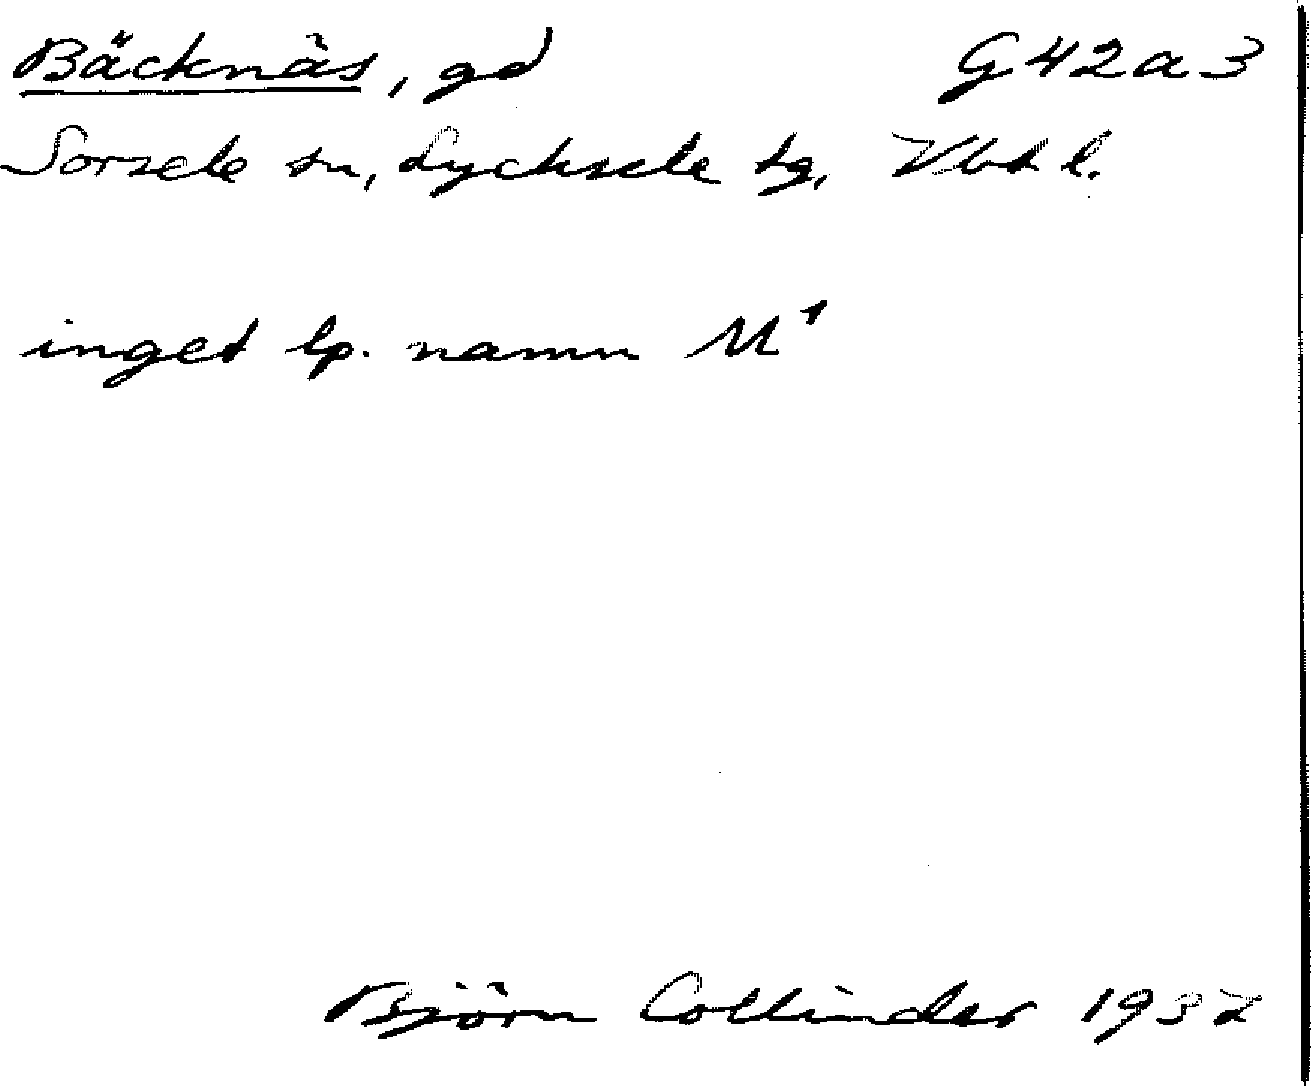 Bäcknäs, gd G42a3
Sorsele sn, Lycksele tg, Vbt l.
inget lp. namn M¹
Björn Collinder 1937